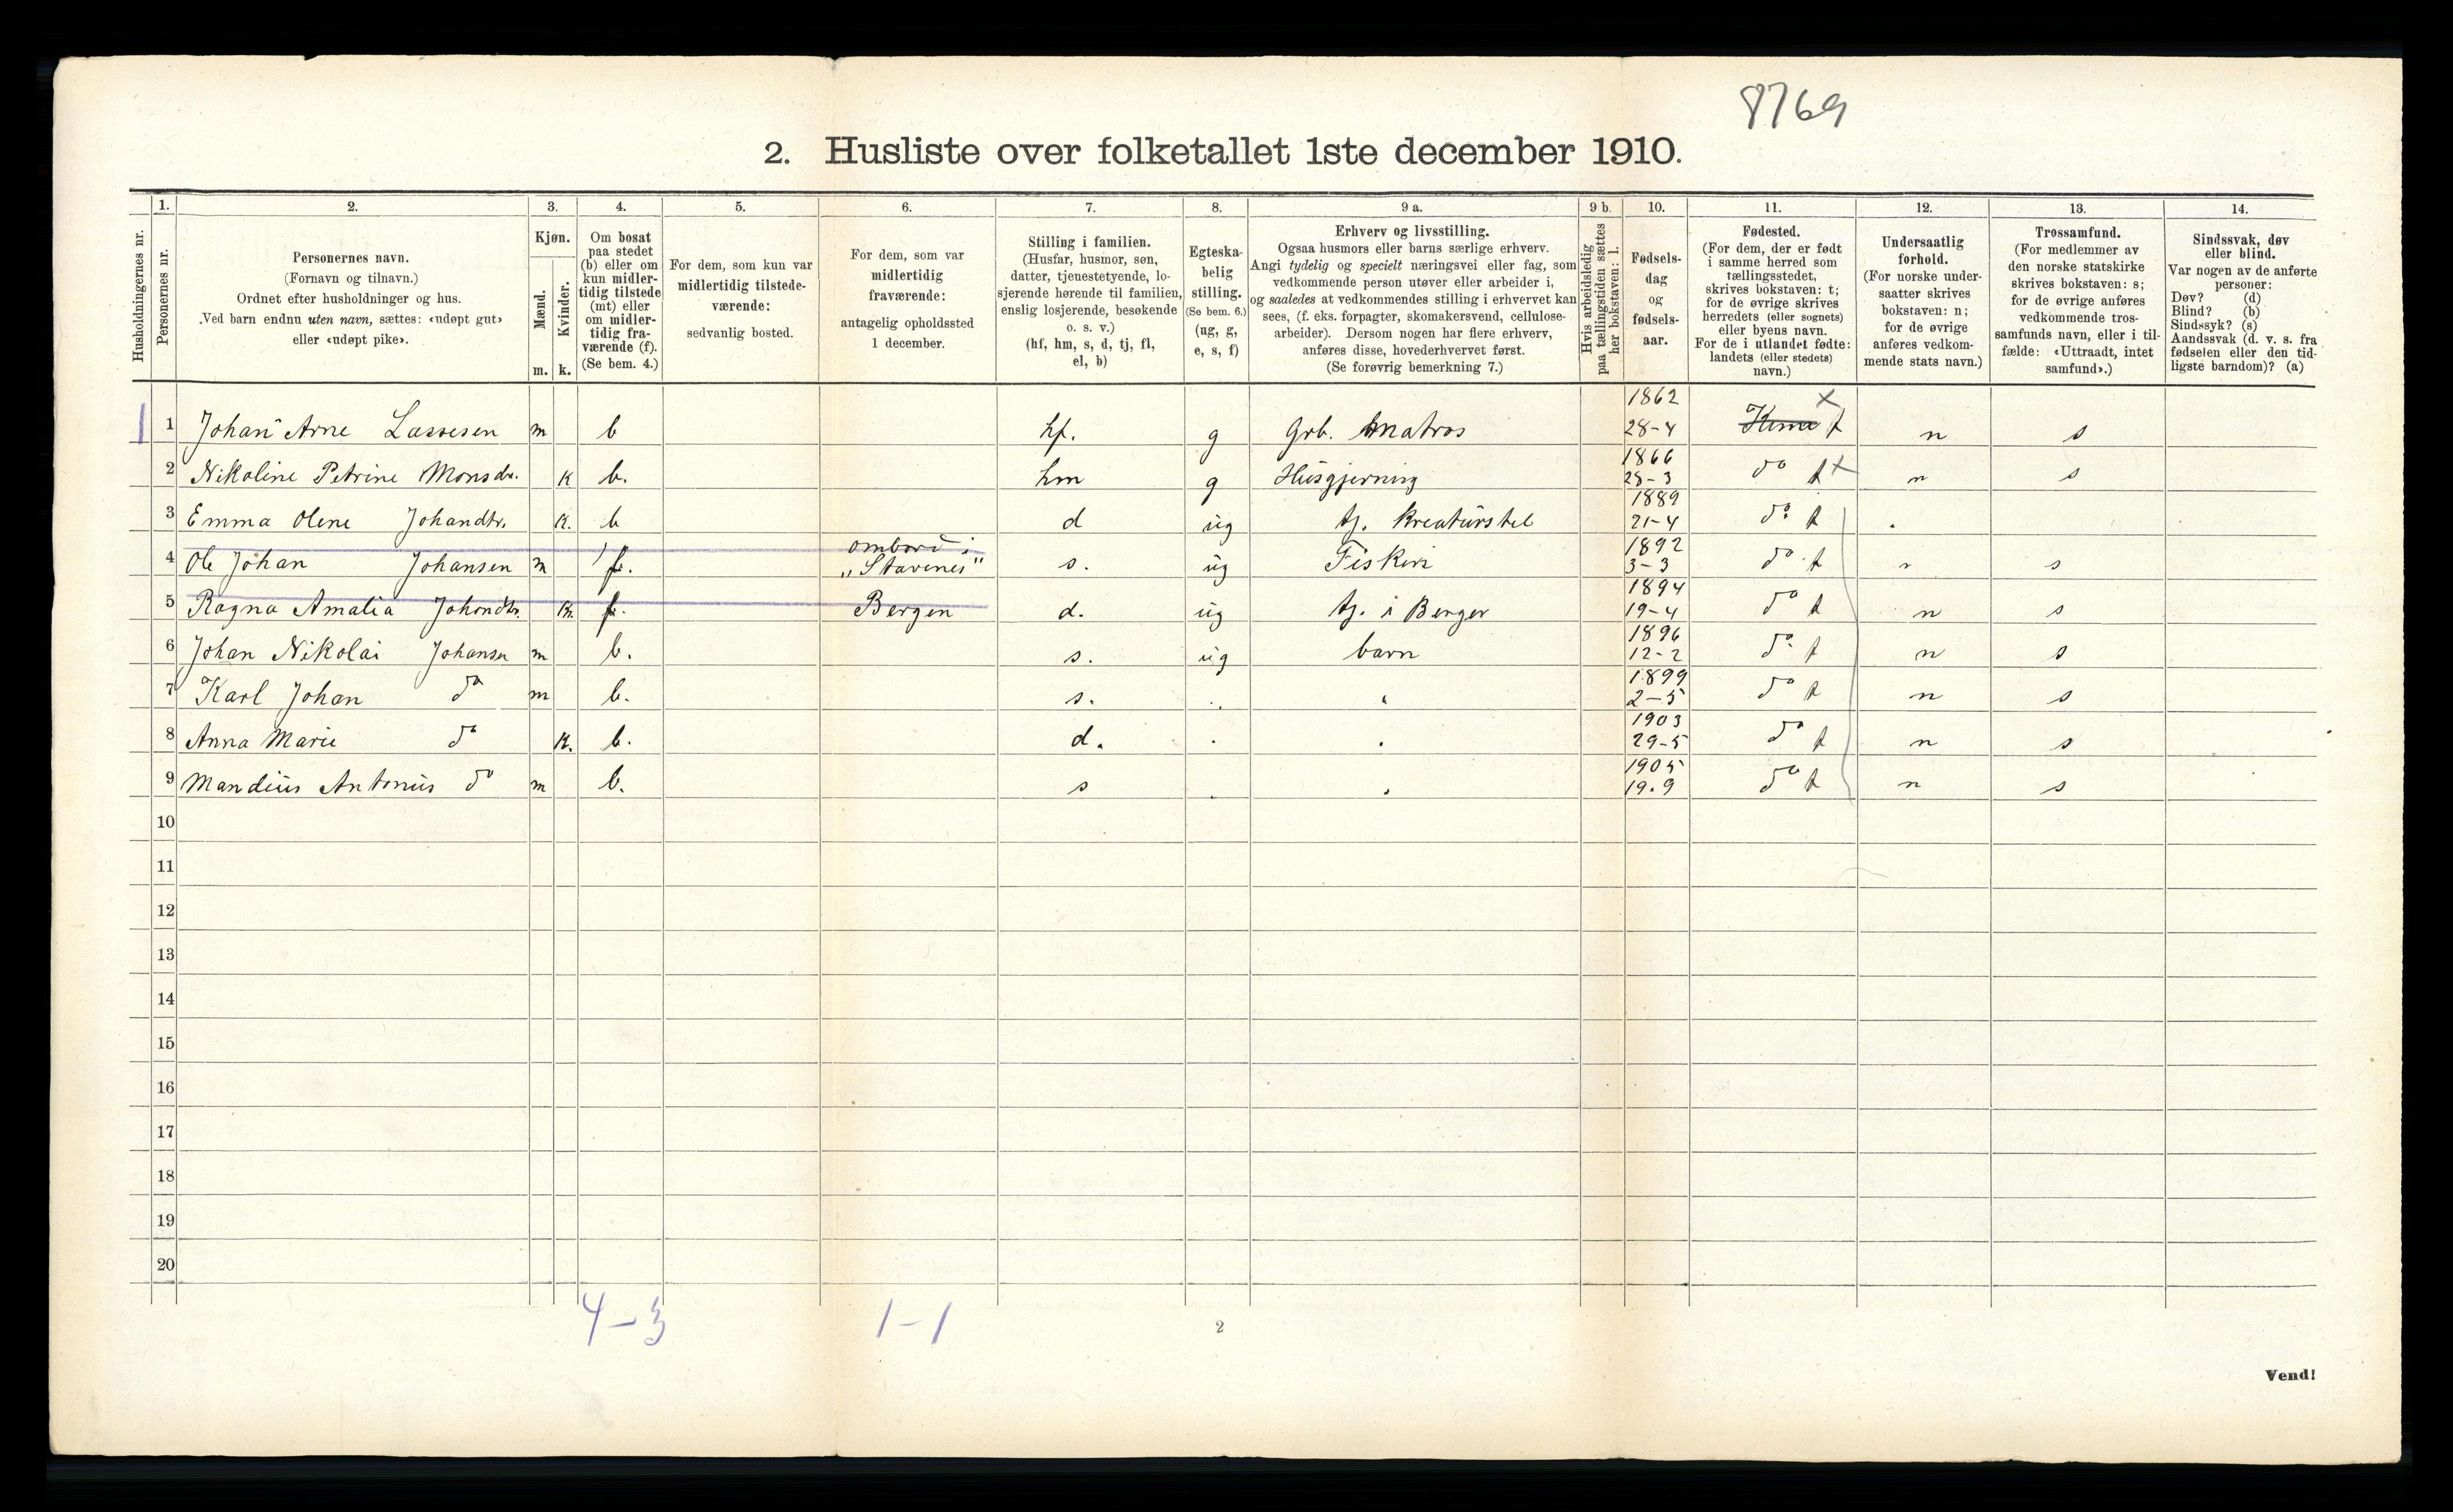 8769
2. Husliste over folketallet 1ste december 1910.
Husholdningernes nr.
1.
Personernes nr.
2.
Personernes navn.
(Fornavn og tilnavn.)
Ordnet efter husholdninger og hus.
Ved barn endnu uten navn, sættes: «udøpt gut»
eller «udøpt pike».
3.
Kjøn.
Mænd.
Kvinder.
m. k.
4.
Om bosat
paa stedet
(b) eller om
kun midler-
tidig tilstede
(mt) eller
om midler-
tidig fra-
værende (f).
(Se bem. 4.)
5.
For dem, som kun var
midlertidig tilstede-
værende:
sedvanlig bosted.
6.
For dem, som var
midlertidig
fraværende:
antagelig opholdssted
1 december.
7.
Stilling i familien.
(Husfar, husmor, søn,
datter, tjenestetyende, lo-
sjerende hørende til familien,
enslig losjerende, besøkende
o. s. v.)
(hf, hm, s, d, tj, fl,
el, b)
8.
Egteska-
belig
stilling.
(Se bem. 6.)
(ug, g,
e, s, f)
9 a.
Erhverv og livsstilling.
Ogsaa husmors eller barns særlige erhverv.
Angi tydelig og specielt næringsvei eller fag, som
vedkommende person utøver eller arbeider i,
og saaledes at vedkommendes stilling i erhvervet kan
sees, (f. eks. forpagter, skomakersvend, cellulose-
arbeider). Dersom nogen har flere erhverv,
anføres disse, hovederhvervet først.
(Se forøvrig bemerkning 7.)
9 b.
Hvis arbeidsledig
paa tællingstiden sættes
her bokstaven: l.
10.
Fødsels-
dag
og
fødsels-
aar.
11.
Fødested.
(For dem, der er født
i samme herred som
tællingsstedet,
skrives bokstaven: t;
for de øvrige skrives
herredets (eller sognets)
eller byens navn.
For de i utlandet fødte:
landets (eller stedets)
navn.)
12.
Undersaatlig
forhold.
(For norske under-
saatter skrives
bokstaven: n;
for de øvrige
anføres vedkom-
mende stats navn.)
13.
Trossamfund.
(For medlemmer av
den norske statskirke
skrives bokstaven: s;
for de øvrige anføres
vedkommende tros-
samfunds navn, eller i til-
fælde: «Uttraadt, intet
samfund».)
14.
Sindssvak, døv
eller blind.
Var nogen av de anførte
personer:
Døv? (d)
Blind? (b)
Sindssyk? (s)
Aandssvak (d. v. s. fra
fødselen eller den tid-
ligste barndom)? (a)
1 1 Johan Arne Lassesen m b hf. g Grb. Matros 1862 28-4 t n s
2 Nikoline Petrine Monsdr. k b. hm g Husgjerning 1866 25-3 do t n s
3 Emma Olene Johandtr. k. b d ug tj. kreaturstel 1889 21-4 do t
4 Ole Johan Johansen m f. ombord i „Stavenes" s. ug Fiskeri 1892 3-3 do t n s
5 Ragna Amalia Johandtr. k. f. Bergen d. ug tj. i Bergen 1894 19-4 do t n s
6 Johan Nikolai Johansen m b. s. ug barn 1896 12-2 do t n s
7 Karl Johan do m b. s. 1899 2-5 do t n s
8 Anna Marie do k. b. d. 1903 29-5 do t n s
9 Mandius Antonius do m b. s 1905 19.9 do t n s
10
11
12
13
14
15
16
17
18
19
20
4-3 1-1
2
Vend!